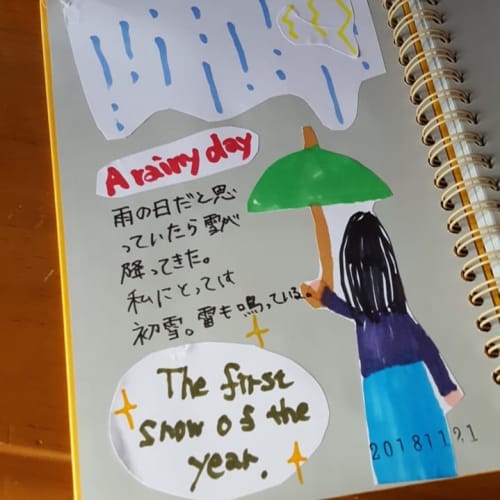 A rainy day
雨の日だと思
っていたら雪が
降ってきた。
私にとっては
初雪。雷も鳴っている。
The first
snow of the
year.